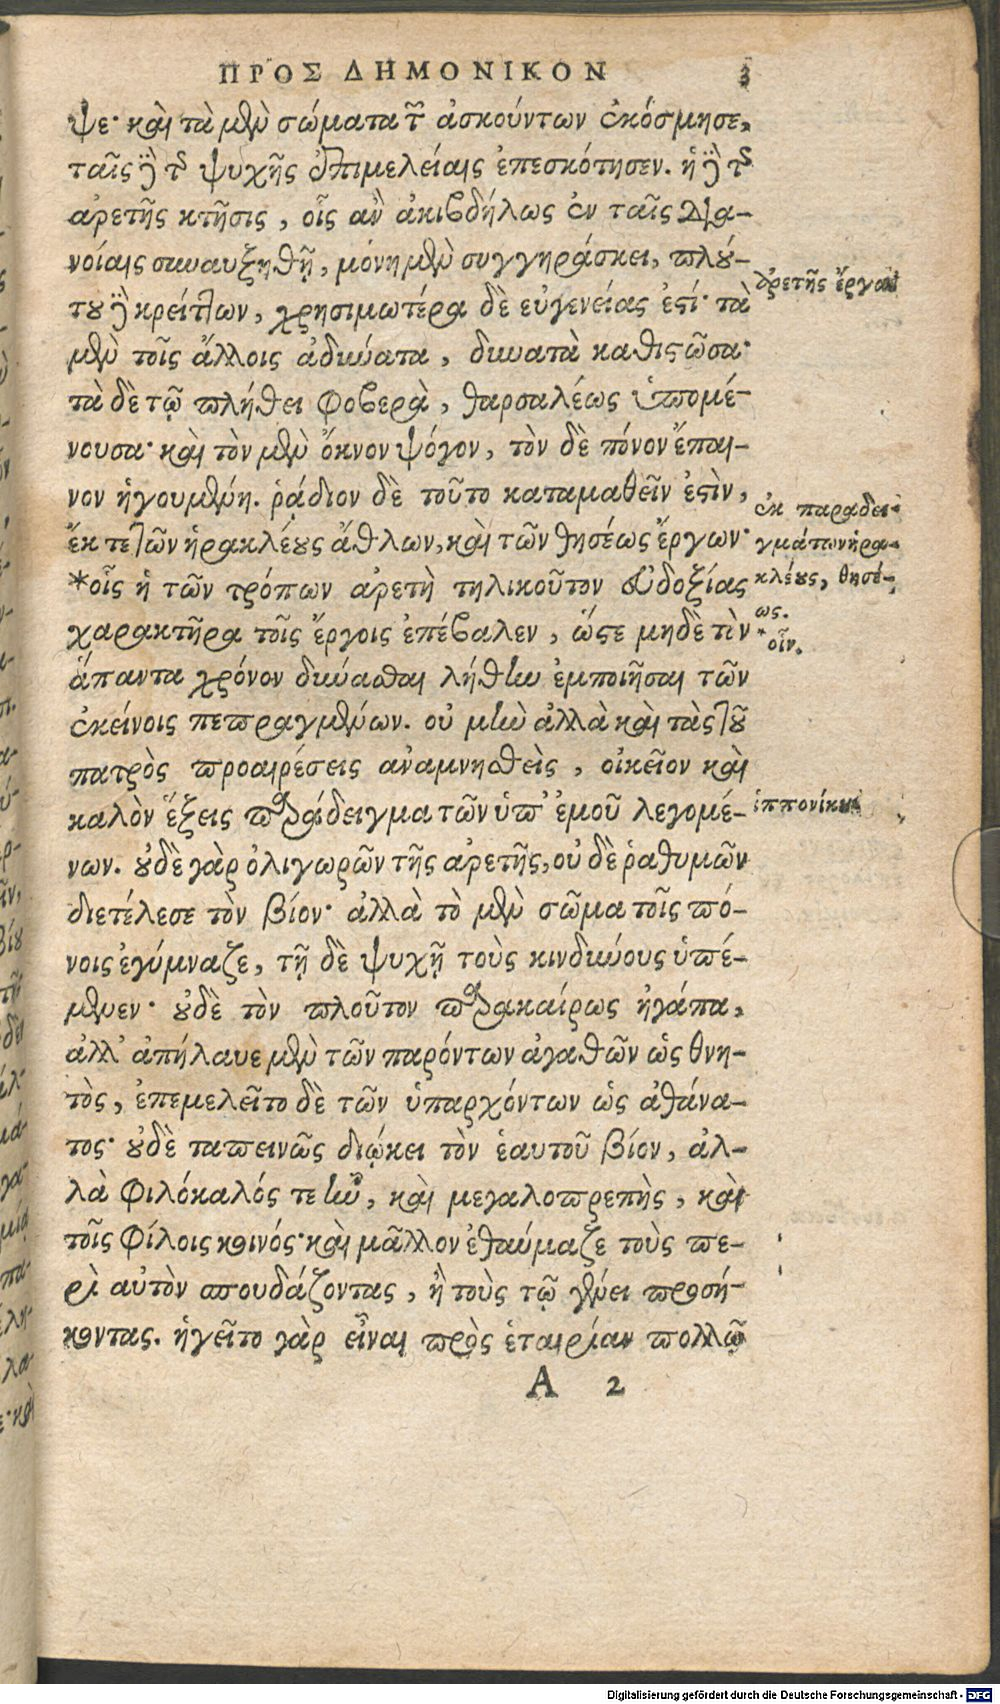 ΠΡΟΣ ΔΗΜΟΝΙΚΟΝ 3
ψε· καὶ τὰ μὲν σώματα τῶν ἀσκούντων ἐκόσμησε,
ταῖς δὲ τῆς ψυχῆς ἐπιμελείαις ἐπεσκότησεν. ἡ δὲ τῆς
ἀρετῆς κτῆσις, οἷς ἂν ἀκιβδήλως ἐν ταῖς δια-
νοίαις συναυξηθῇ, μόνη μὲν συγγηράσκει, πλού-
του δὲ κρείττων, χρησιμωτέρα δὲ εὐγενείας ἐστί· τὰ
μὲν τοῖς ἄλλοις ἀδύνατα, δυνατὰ καθιστῶσα·
τὰ δὲ τῷ πλήθει φοβερὰ, θαρσαλέως ὑπομέ-
νουσα· καὶ τὸν μὲν ὄκνον ψόγον, τὸν δὲ πόνον ἔπαι-
νον ἡγουμένη. ῥάδιον δὲ τοῦτο καταμαθεῖν ἐστὶν,
ἔκ τε τῶν ἡρακλέους ἄθλων, καὶ τῶν θησέως ἔργων·
*οἷς ἡ τῶν τρόπων ἀρετὴ τηλικοῦτον εὐδοξίας
χαρακτῆρα τοῖς ἔργοις ἐπέβαλεν, ὥστε μηδὲ τὸν
ἅπαντα χρόνον δύνασθαι λήθην ἐμποιῆσαι τῶν
ἐκείνοις πεπραγμένων. οὐ μὴν ἀλλὰ καὶ τὰς τοῦ
πατρὸς προαιρέσεις ἀναμνησθεὶς, οἰκεῖον καὶ
καλὸν ἕξεις παράδειγμα τῶν ὑπ' ἐμοῦ λεγομέ-
νων. οὐδὲ γὰρ ὀλιγωρῶν τῆς ἀρετῆς, οὐδὲ ῥαθυμῶν
διετέλεσε τὸν βίον· ἀλλὰ τὸ μὲν σῶμα τοῖς πό-
νοις ἐγύμναζε, τῇ δὲ ψυχῇ τοὺς κινδύνους ὑπέ-
μενεν· οὐδὲ τὸν πλοῦτον παρακαίρως ἠγάπα,
ἀλλ' ἀπήλαυε μὲν τῶν παρόντων ἀγαθῶν ὡς θνη-
τὸς, ἐπεμελεῖτο δὲ τῶν ὑπαρχόντων ὡς ἀθάνα-
τος· οὐδὲ ταπεινῶς διῴκει τὸν ἑαυτοῦ βίον, ἀλ-
λὰ φιλόκαλός τε ἦν, καὶ μεγαλοπρεπὴς, καὶ
τοῖς φίλοις κοινός· καὶ μᾶλλον ἐθαύμαζε τοὺς πε-
ρὶ αὐτὸν σπουδάζοντας, ἢ τοὺς τῷ γένει προσή-
κοντας. ἡγεῖτο γὰρ εἶναι πρὸς ἑταιρίαν πολλῷ
A 2
ἀρετῆς ἔργα
ἐκ παραδει-
γμάτων ἡρα-
κλέους, θησέ-
ως.
* οἷν.
ἱππονίκου
Digitalisierung gefördert durch die Deutsche Forschungsgemeinschaft - DFG